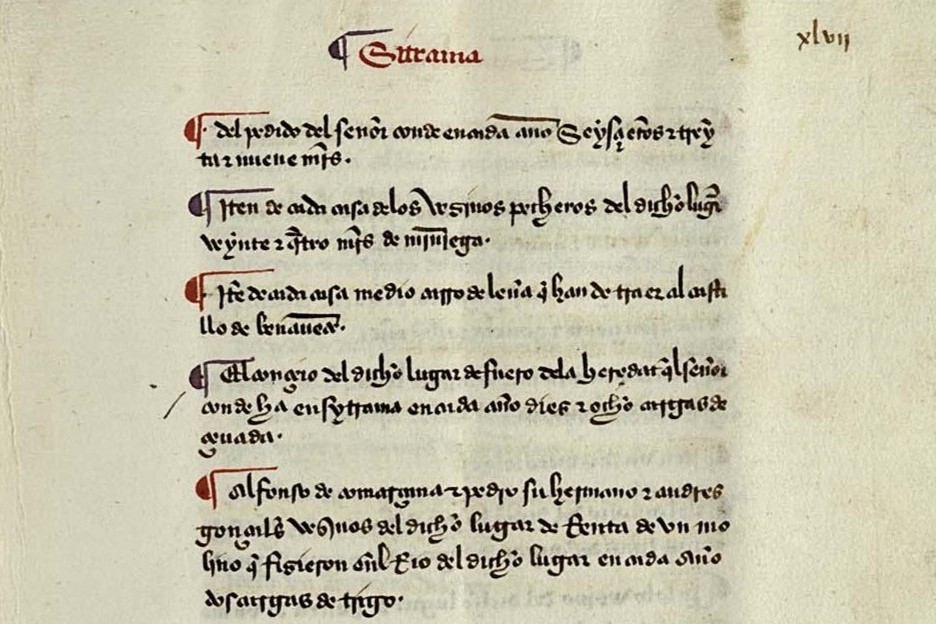 xlvii
¶ Sitrama
¶ del pedido del señor conde en cada año Seysçientos ⁊ trey
ta ⁊ nueve mrs.
¶ Iten de cada casa de los vesinos pecheros del dicho lugar
veynte ⁊ qatro mrs de
¶ Ite de cada casa medio carro de leña q̃ han de traer al casti
llo de benavente.
¶ El conçeio del dicho lugar de fuero dela heredat q̃l señor
conde ha en sytrama en cada año dies ⁊ ocho cargas de
çeuada.
¶ Alfonso de ⁊ pedro su hermano ⁊ andres
gonçales vesinos del dicho lugar de Renta de vn mo
lino q̃ fisieron enl Rio del dicho lugar en cada año
dos cargas de trigo.